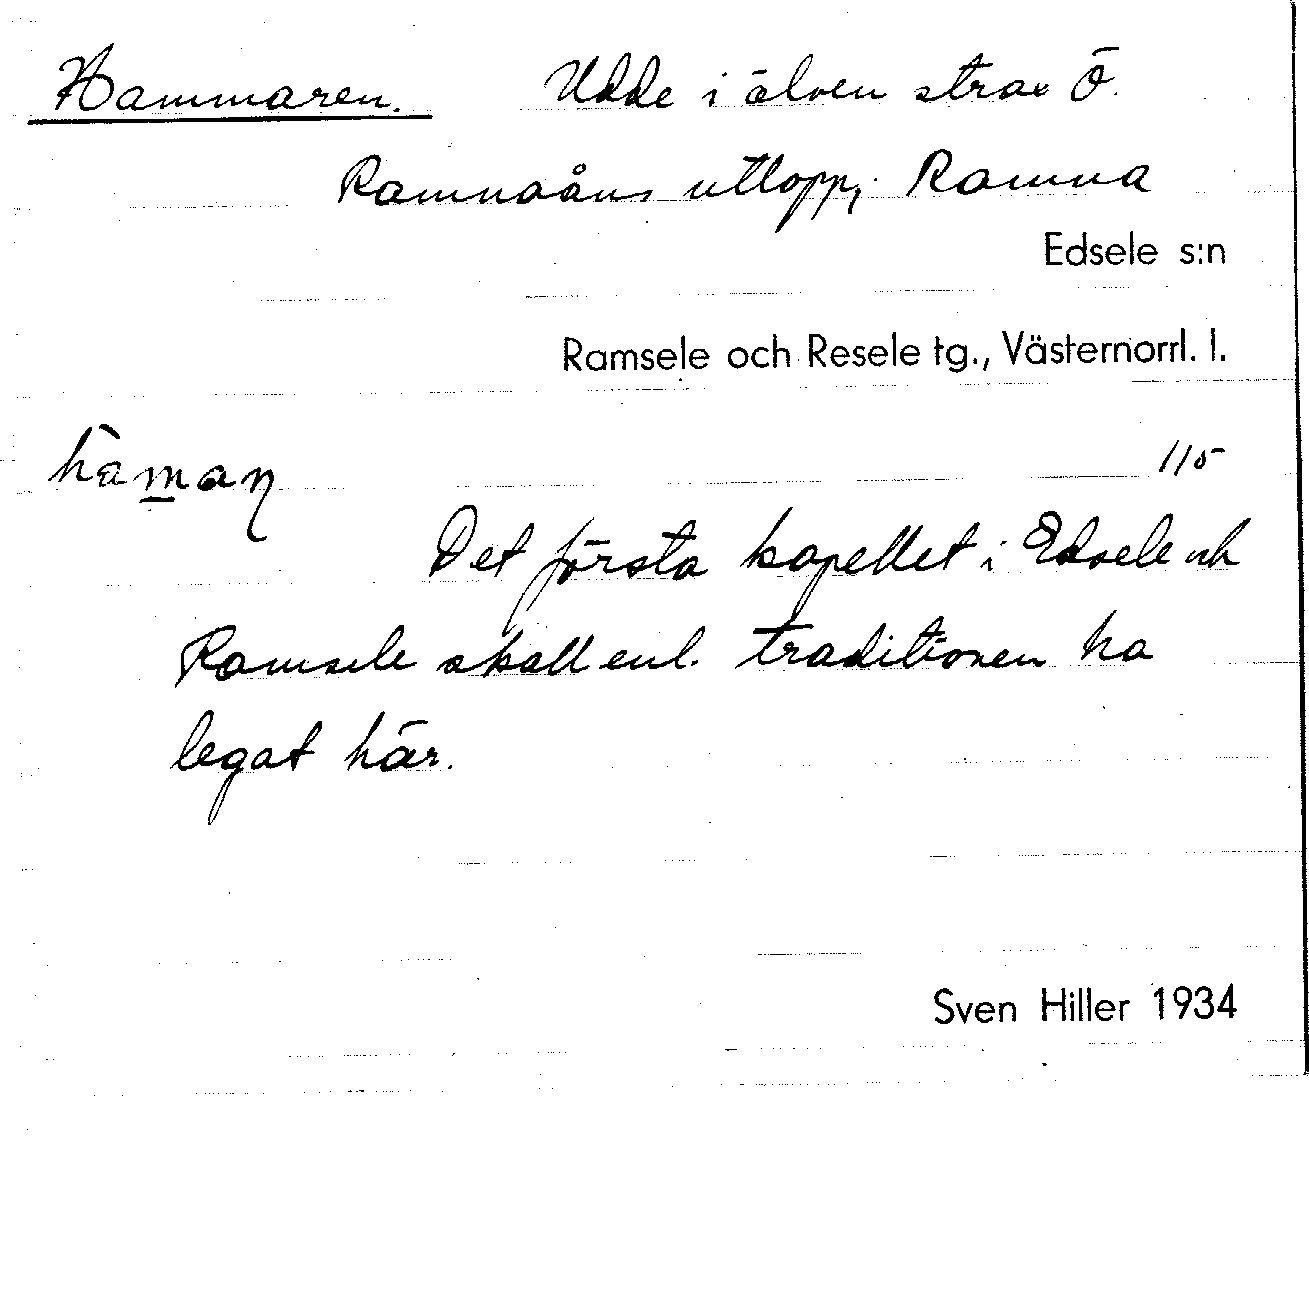 Hammaren. Udde i älven strax Ö.
Ramnaåns utlopp, Ramna
Edsele s:n
Ramsele och Resele tg., Västernorrl. l.
115
Det första kapellet i Edsele och
Ramsele skall enl. traditionen ha
legat här.
Sven Hiller 1934